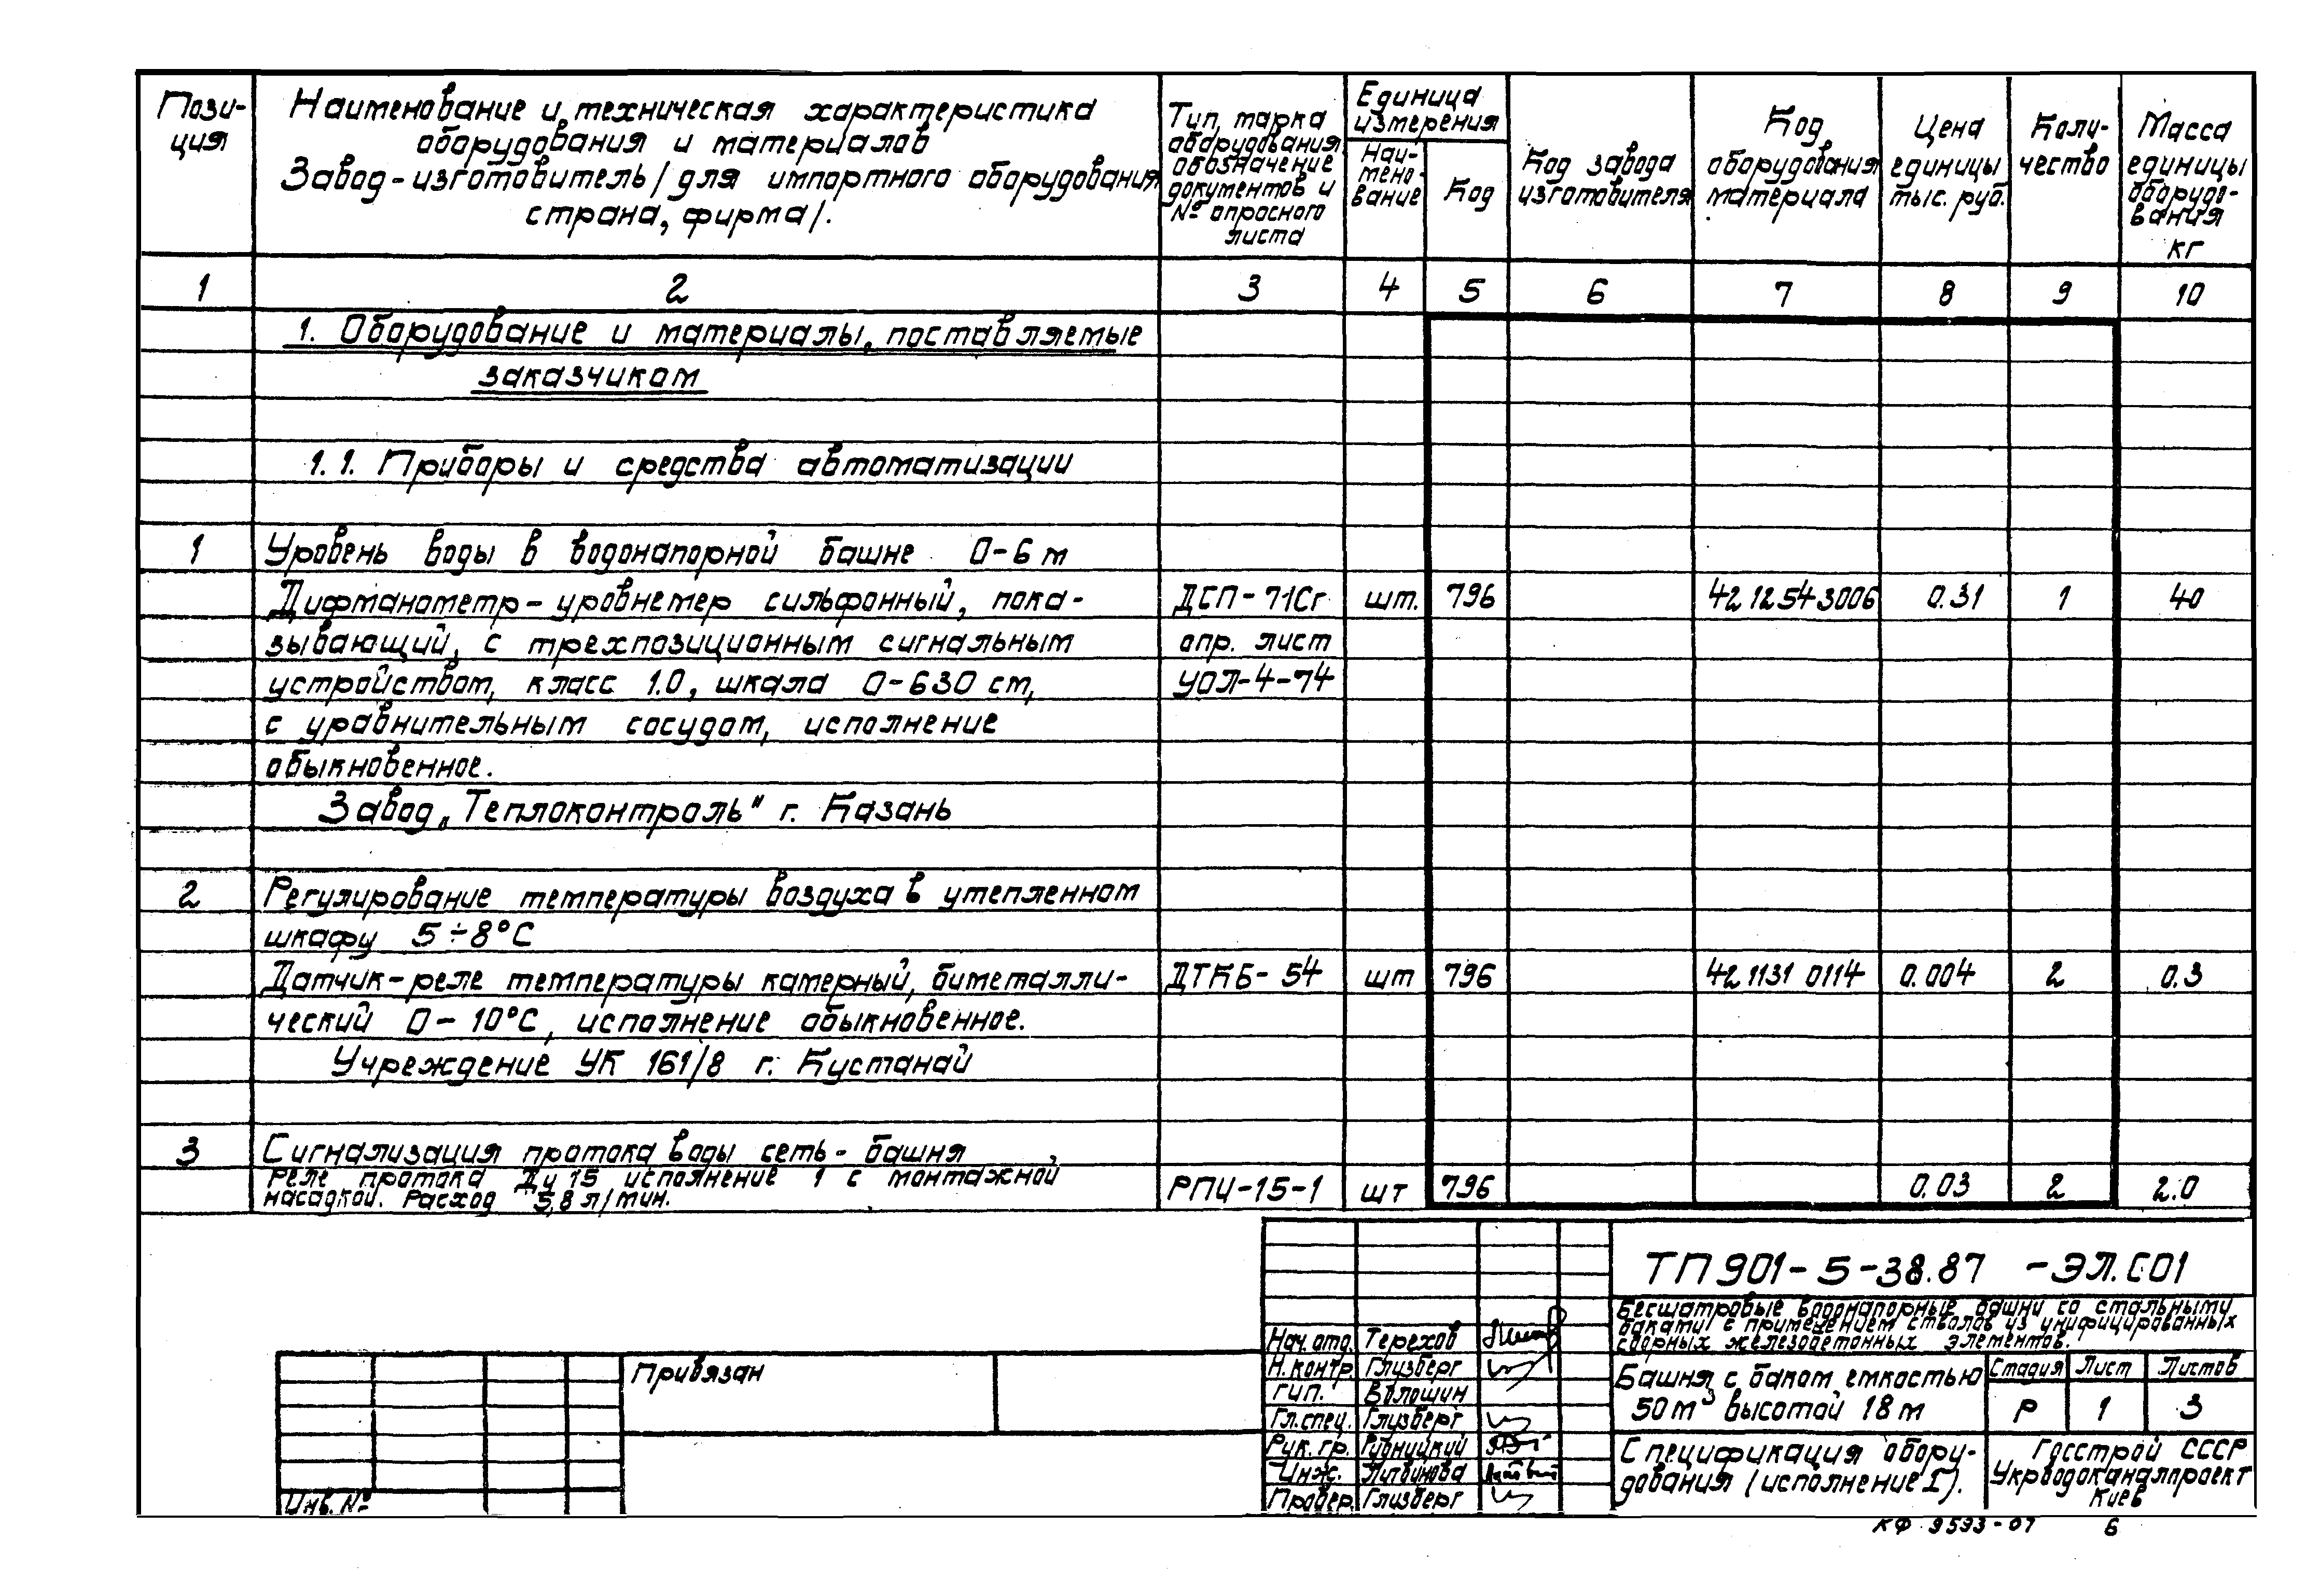 Пози-
ция
Наименование и техническая характеристика
оборудования и материалов
Завод-изготовитель/для импортного оборудования
страна, фирма/.
Тип, марка
оборудования
обозначение
документов и
№ опросного
листа
Единица
измерения
Наи-
мено-
вание
Код
Код завода
изготовителя
Код
оборудования
материала
Цена
единицы
тыс. руб.
Коли-
чество
Масса
единицы
оборудо-
вания
кг
1 2 3 4 5 6 7 8 9 10
1. Оборудование и материалы, поставляемые
заказчиком
1.1. Приборы и средства автоматизации
1 Уровень воды в водонапорной башне 0-6 м
Дифманометр-уровнемер сильфонный, пока- ДСП-71Сг шт. 796 42 1254 3006 0.31 1 40
зывающий, с трехпозиционным сигнальным опр. лист
устройством, класс 1.0, шкала 0-630 см, УОЛ-4-74
с уравнительным сосудом, исполнение
обыкновенное.
Завод „Теплоконтроль" г. Казань
2 Регулирование температуры воздуха в утепленном
шкафу 5÷8°С
Датчик-реле температуры камерный, биметалли- ДТКБ-54 шт 796 42 1131 0114 0.004 2 0.3
ческий 0-10°С, исполнение обыкновенное.
Учреждение УК 161/8 г. Кустанай
3 Сигнализация протока воды сеть-башня
реле протока Ду 15 исполнение 1 с монтажной
насадкой. Расход 5,8 л/мин. РПИ-15-1 шт 796 0.03 2 2.0
ТП 901-5-38.87 -ЭЛ.СО1
Бесшатровые водонапорные башни со стальными
баками с применением стволов из унифицированных
сборных железобетонных элементов.
Нач. отд. Терехов
Н. контр. Глузберг
ГИП. Волошин
Гл. спец. Глузберг
Рук. гр. Рибницкий
Инж. Литвинова
Провер. Глизберг
Башня с баком емкостью
50 м³ высотой 18 м
Стадия Лист Листов
Р 1 3
Спецификация обору-
дования (исполнение I).
Госстрой СССР
Укрводоканалпроект
Киев
Привязан
Инв. №
КФ 9593-07 6